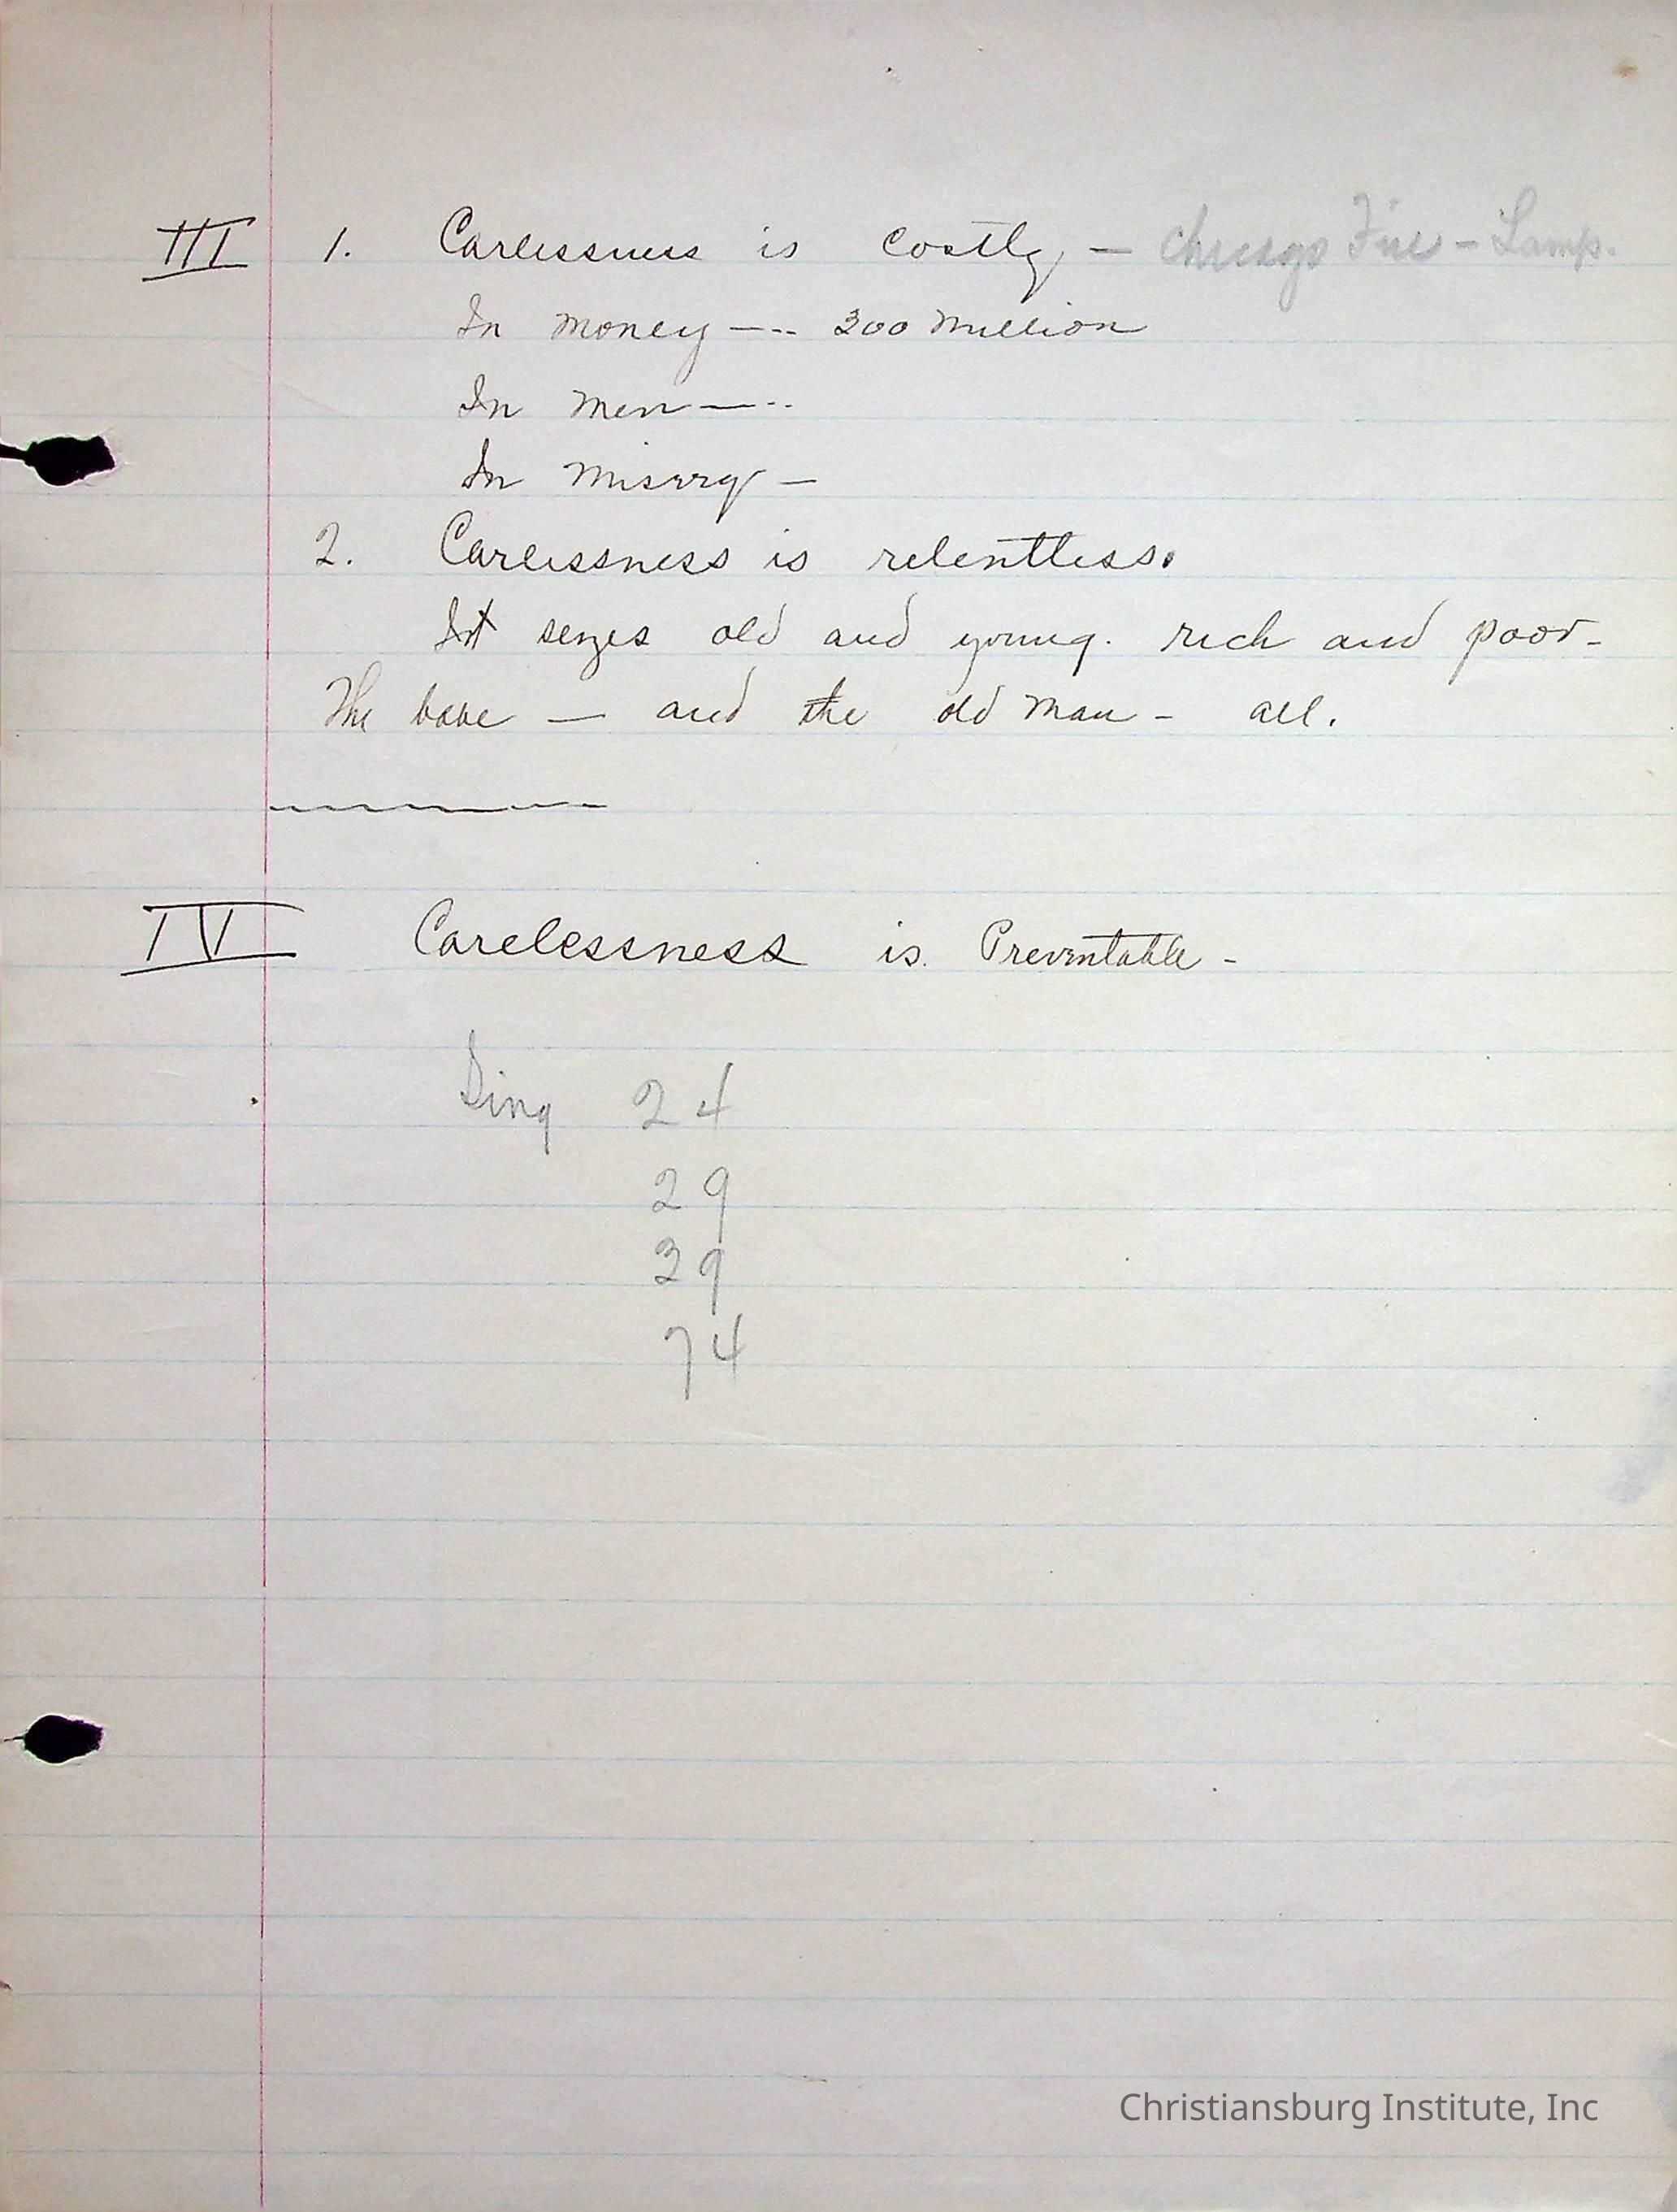 III 1. Carelessness is costly, — Chicago Fire - Lamp.
In money --- 300 million
In men ---
In misery -
2. Carelessness is relentless.
It seizes old and young. rich and poor-
The babe — and the old man - all.
IV Carelessness is Preventable -
Sing 24
29
39
74
Christiansburg Institute, Inc